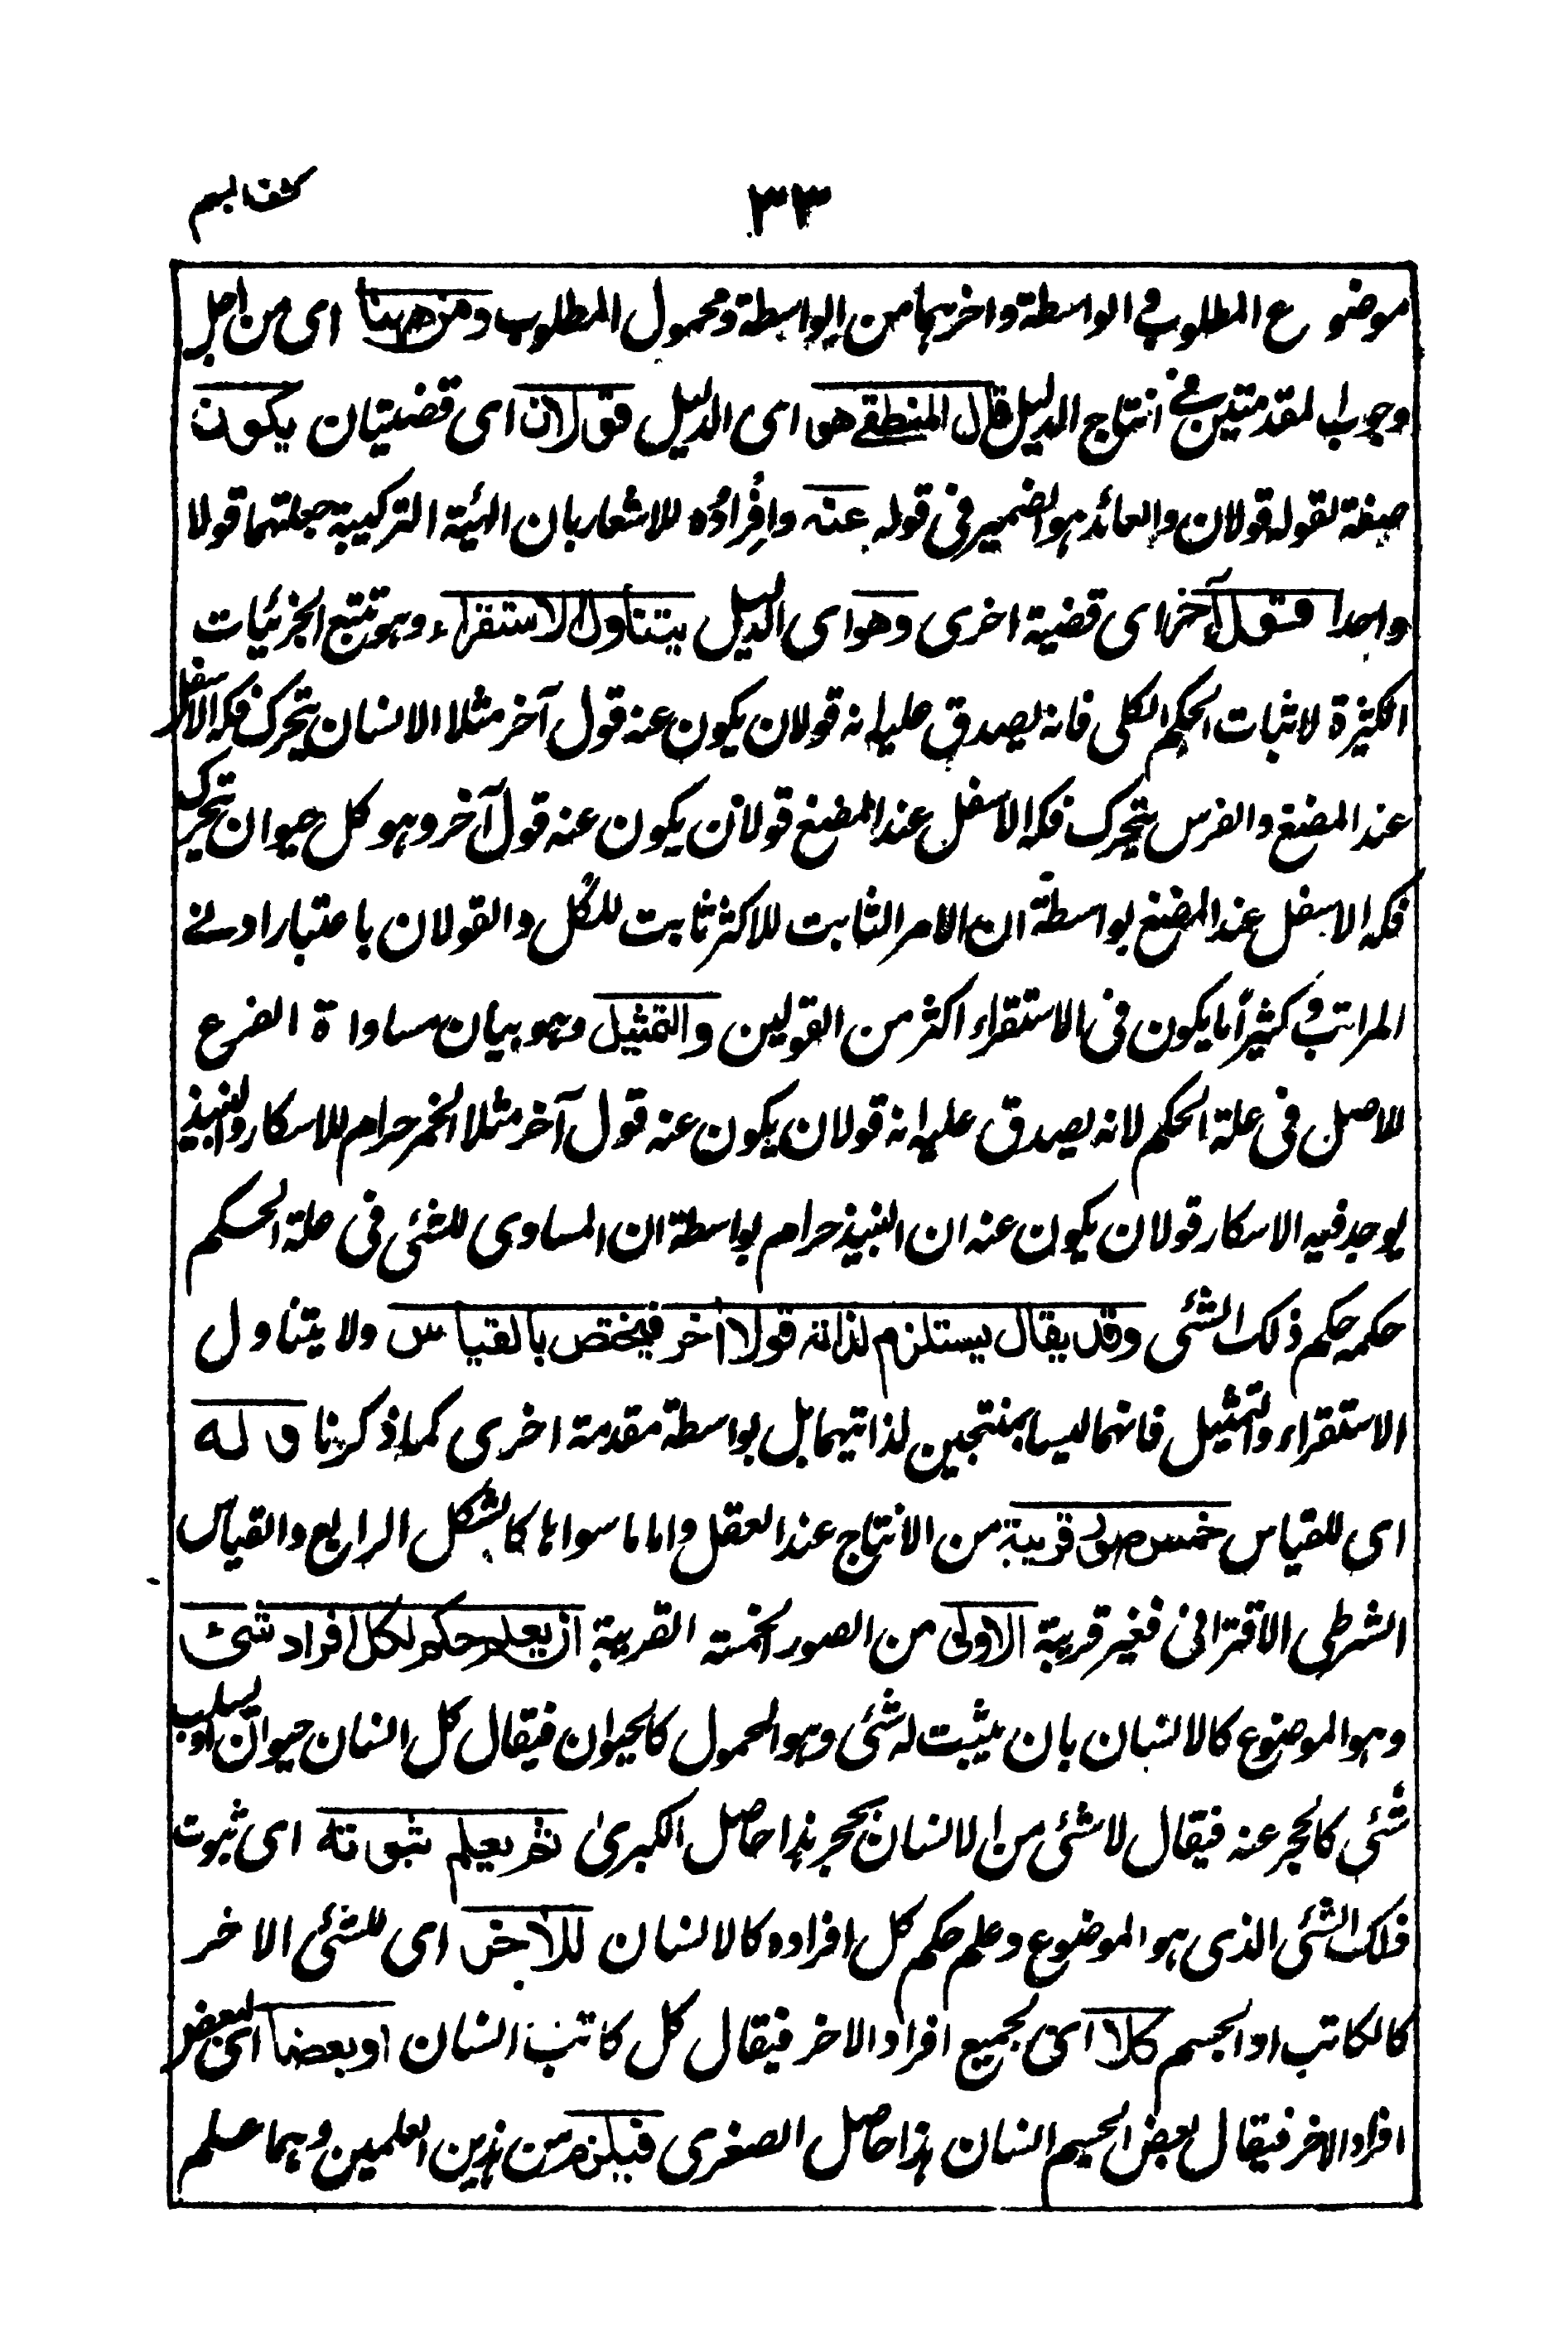 كشف المبهم
٣٣
موضوع المطلوب في الواسطة واخرٰهما من الواسطة ومحمول المطلوب ومن ههنا اى من اجل
وجوب المقدمتين في انتاج الدليل قال المنطقي هو اى الدليل قولان اى قضيتان يكون
صفة لقوله قولان والعائد هو الضمير فى قوله عنه وافراده للاشعار بان الهيئة التركيبية جعلتهما قولا
واحدا قول آخر اى قضية اخرى وهو اى الدليل يتناول الاستقراء وهو تتبع الجزئيات
الكثيرة لاثبات الحكم الكلى فانه يصدق عليه انه قولان يكون عنه قول آخر مثلا الانسان يتحرك فكه الاسفل
عند المضغ والفرس يتحرك فكه الاسفل عند المضغ قولان يكون عنه قول آخر وهو كل حيوان يتحرك
فكه الاسفل عند المضغ بواسطة ان الامر الثابت للاكثر ثابت للكل والقولان باعتبار ادنے
المراتب وكثيراً ما يكون فى الاستقراء اكثر من القولين والتمثيل وهو بيان مساواة الفرع
للاصل فى علة الحكم لانه يصدق عليه انه قولان يكون عنه قول آخر مثلا الخمر حرام للاسكار والنبيذ
يوجد فيه الاسكار قولان يكون عنه ان النبيذ حرام بواسطة ان المساوى للشئى فى علة الحكم
حكمه حكم ذلك الشئى وقد يقال يستلزم لذاته قولا اٰخر فيختص بالقياس ولا يتناول
الاستقراء والتمثيل فانهما ليسا بمنتجين لذاتيهما بل بواسطة مقدمة اخرى كما ذكرنا وله
اى للقياس خمس صور قريبة من الانتاج عند العقل واما ما سواها كالشكل الرابع والقياس
الشرطى الاقترانى فغير قريبة الاولى من الصور الخمسة القريبة ان يعلم حكم لكل افراد شئ
وهو الموضوع كالانسان بان يثبت له شئى وهو المحمول كالحيوان فيقال كل انسان حيوان او يسلب
شئى كالحجر عنه فيقال لا شئى من الانسان بحجر هذا حاصل الكبرىٰ ثم يعلم ثبوته اى ثبوت
ذلك الشئى الذى هو الموضوع وعلم حكم كل افراده كالانسان للاٰخر اى للشئى الاخر
كالكاتب او الجسم كلا اى لجميع افراد الاخر فيقال كل كاتب انسان او بعضا اى لبعض
افراد الاخر فيقال بعض الجسم انسان هذا حاصل الصغرى فيلزم من هذين العلمين وهما علم